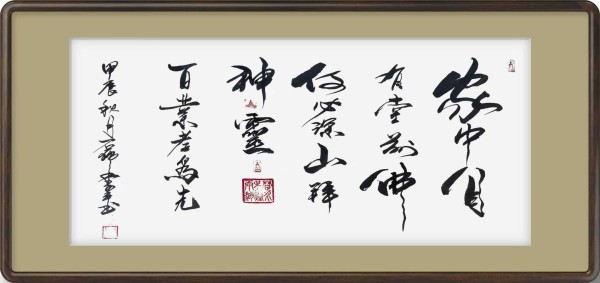 家中自
有堂前佛
何必深山拜
神靈
百業孝為先
甲辰秋月